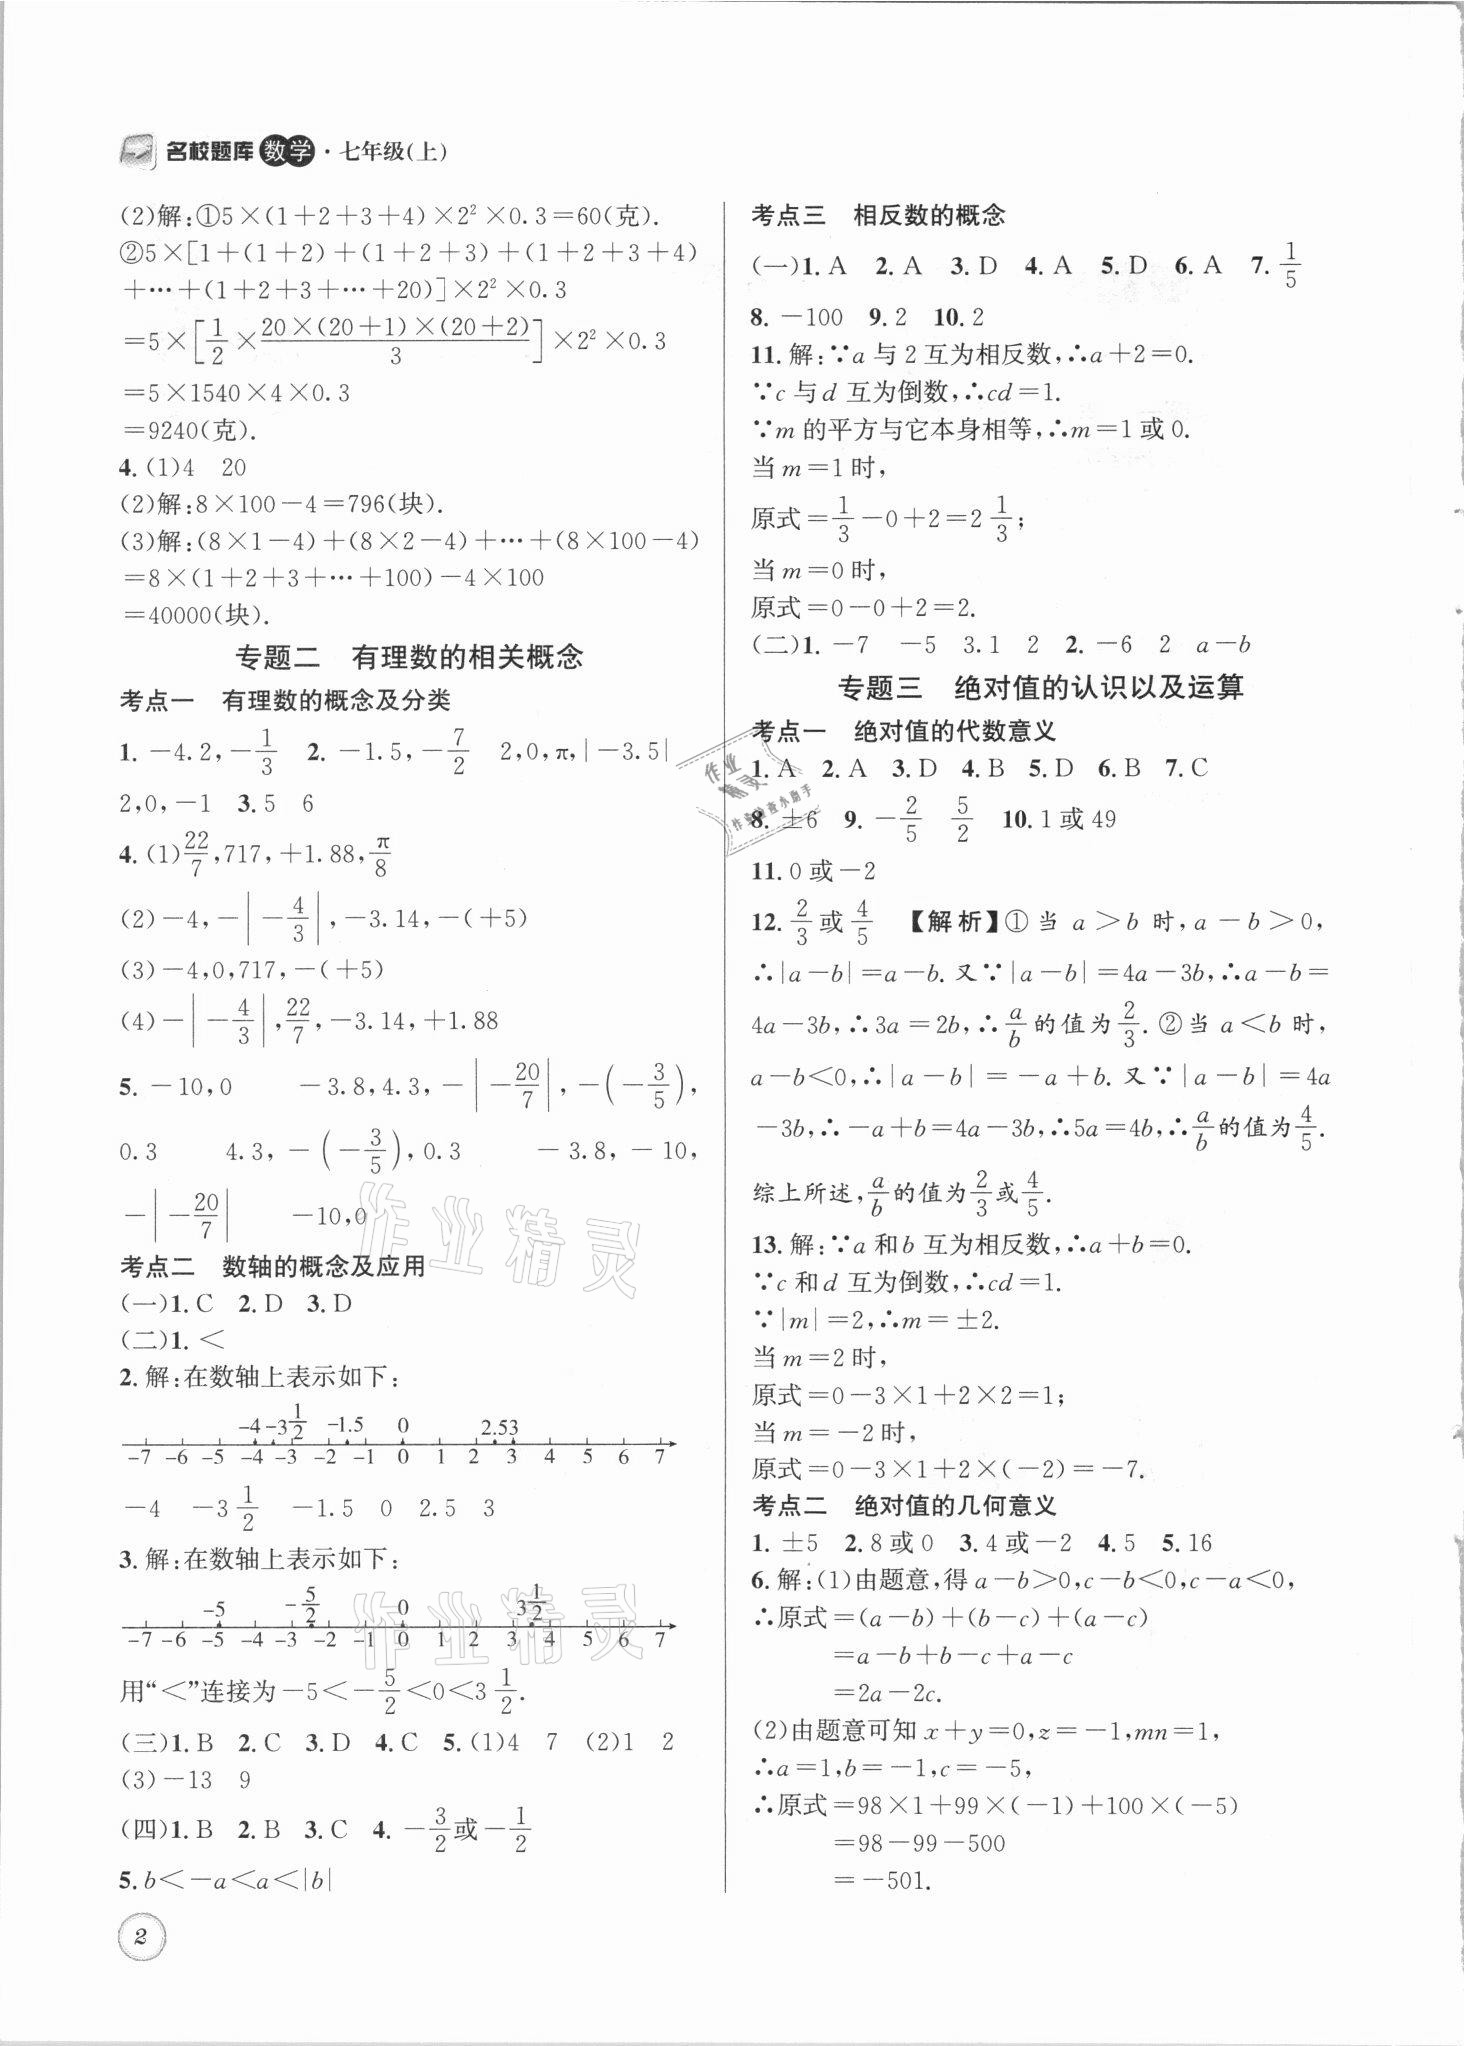 名校题库 数学·七年级(上)
(2)解:①5×(1+2+3+4)×2²×0.3=60(克).
②5×[1+(1+2)+(1+2+3)+(1+2+3+4)
+…+(1+2+3+…+20)]×2²×0.3
=5×[1/2×20×(20+1)×(20+2)/3]×2²×0.3
=5×1540×4×0.3
=9240(克).
4.(1)4 20
(2)解:8×100-4=796(块).
(3)解:(8×1-4)+(8×2-4)+…+(8×100-4)
=8×(1+2+3+…+100)-4×100
=40000(块).
专题二 有理数的相关概念
考点一 有理数的概念及分类
1. -4.2,-1/3 2. -1.5,-7/2 2,0,π,|-3.5|
2,0,-1 3.5 6
4.(1)22/7,717,+1.88,π/8
(2)-4,-|-4/3|,-3.14,-(+5)
(3)-4,0,717,-(+5)
(4)-|-4/3|,22/7,-3.14,+1.88
5. -10,0 -3.8,4.3,-|-20/7|,-(-3/5),
0.3 4.3,-(-3/5),0.3 -3.8,-10,
-|-20/7| -10,0
考点二 数轴的概念及应用
(一)1.C 2.D 3.D
(二)1.<
2.解:在数轴上表示如下:
-4 -3 1/2 -1.5 0 2.53
-7 -6 -5 -4 -3 -2 -1 0 1 2 3 4 5 6 7
-4 -3 1/2 -1.5 0 2.5 3
3.解:在数轴上表示如下:
-5 -5/2 0 3 1/2
-7 -6 -5 -4 -3 -2 -1 0 1 2 3 4 5 6 7
用“<”连接为-5<-5/2<0<3 1/2.
(三)1.B 2.C 3.D 4.C 5.(1)4 7 (2)1 2
(3)-13 9
(四)1.B 2.B 3.C 4. -3/2或-1/2
5.b<-a<a<|b|
2
考点三 相反数的概念
(一)1.A 2.A 3.D 4.A 5.D 6.A 7. 1/5
8. -100 9.2 10.2
11.解:∵a与2互为相反数,∴a+2=0.
∵c与d互为倒数,∴cd=1.
∵m的平方与它本身相等,∴m=1或0.
当m=1时,
原式=1/3-0+2=2 1/3;
当m=0时,
原式=0-0+2=2.
(二)1. -7 -5 3.1 2 2. -6 2 a-b
专题三 绝对值的认识以及运算
考点一 绝对值的代数意义
1.A 2.A 3.D 4.B 5.D 6.B 7.C
8. ±6 9. -2/5 5/2 10.1或49
11.0或-2
12. 2/3或4/5 【解析】①当a>b时,a-b>0,
∴|a-b|=a-b.又∵|a-b|=4a-3b,∴a-b=
4a-3b,∴3a=2b,∴a/b的值为2/3.②当a<b时,
a-b<0,∴|a-b|=-a+b.又∵|a-b|=4a
-3b,∴-a+b=4a-3b,∴5a=4b,∴a/b的值为4/5.
综上所述,a/b的值为2/3或4/5.
13.解:∵a和b互为相反数,∴a+b=0.
∵c和d互为倒数,∴cd=1.
∵|m|=2,∴m=±2.
当m=2时,
原式=0-3×1+2×2=1;
当m=-2时,
原式=0-3×1+2×(-2)=-7.
考点二 绝对值的几何意义
1. ±5 2.8或0 3.4或-2 4.5 5.16
6.解:(1)由题意,得a-b>0,c-b<0,c-a<0,
∴原式=(a-b)+(b-c)+(a-c)
=a-b+b-c+a-c
=2a-2c.
(2)由题意可知x+y=0,z=-1,mn=1,
∴a=1,b=-1,c=-5,
∴原式=98×1+99×(-1)+100×(-5)
=98-99-500
=-501.
作业精灵
作业精灵
作业精灵
作业检查小助手